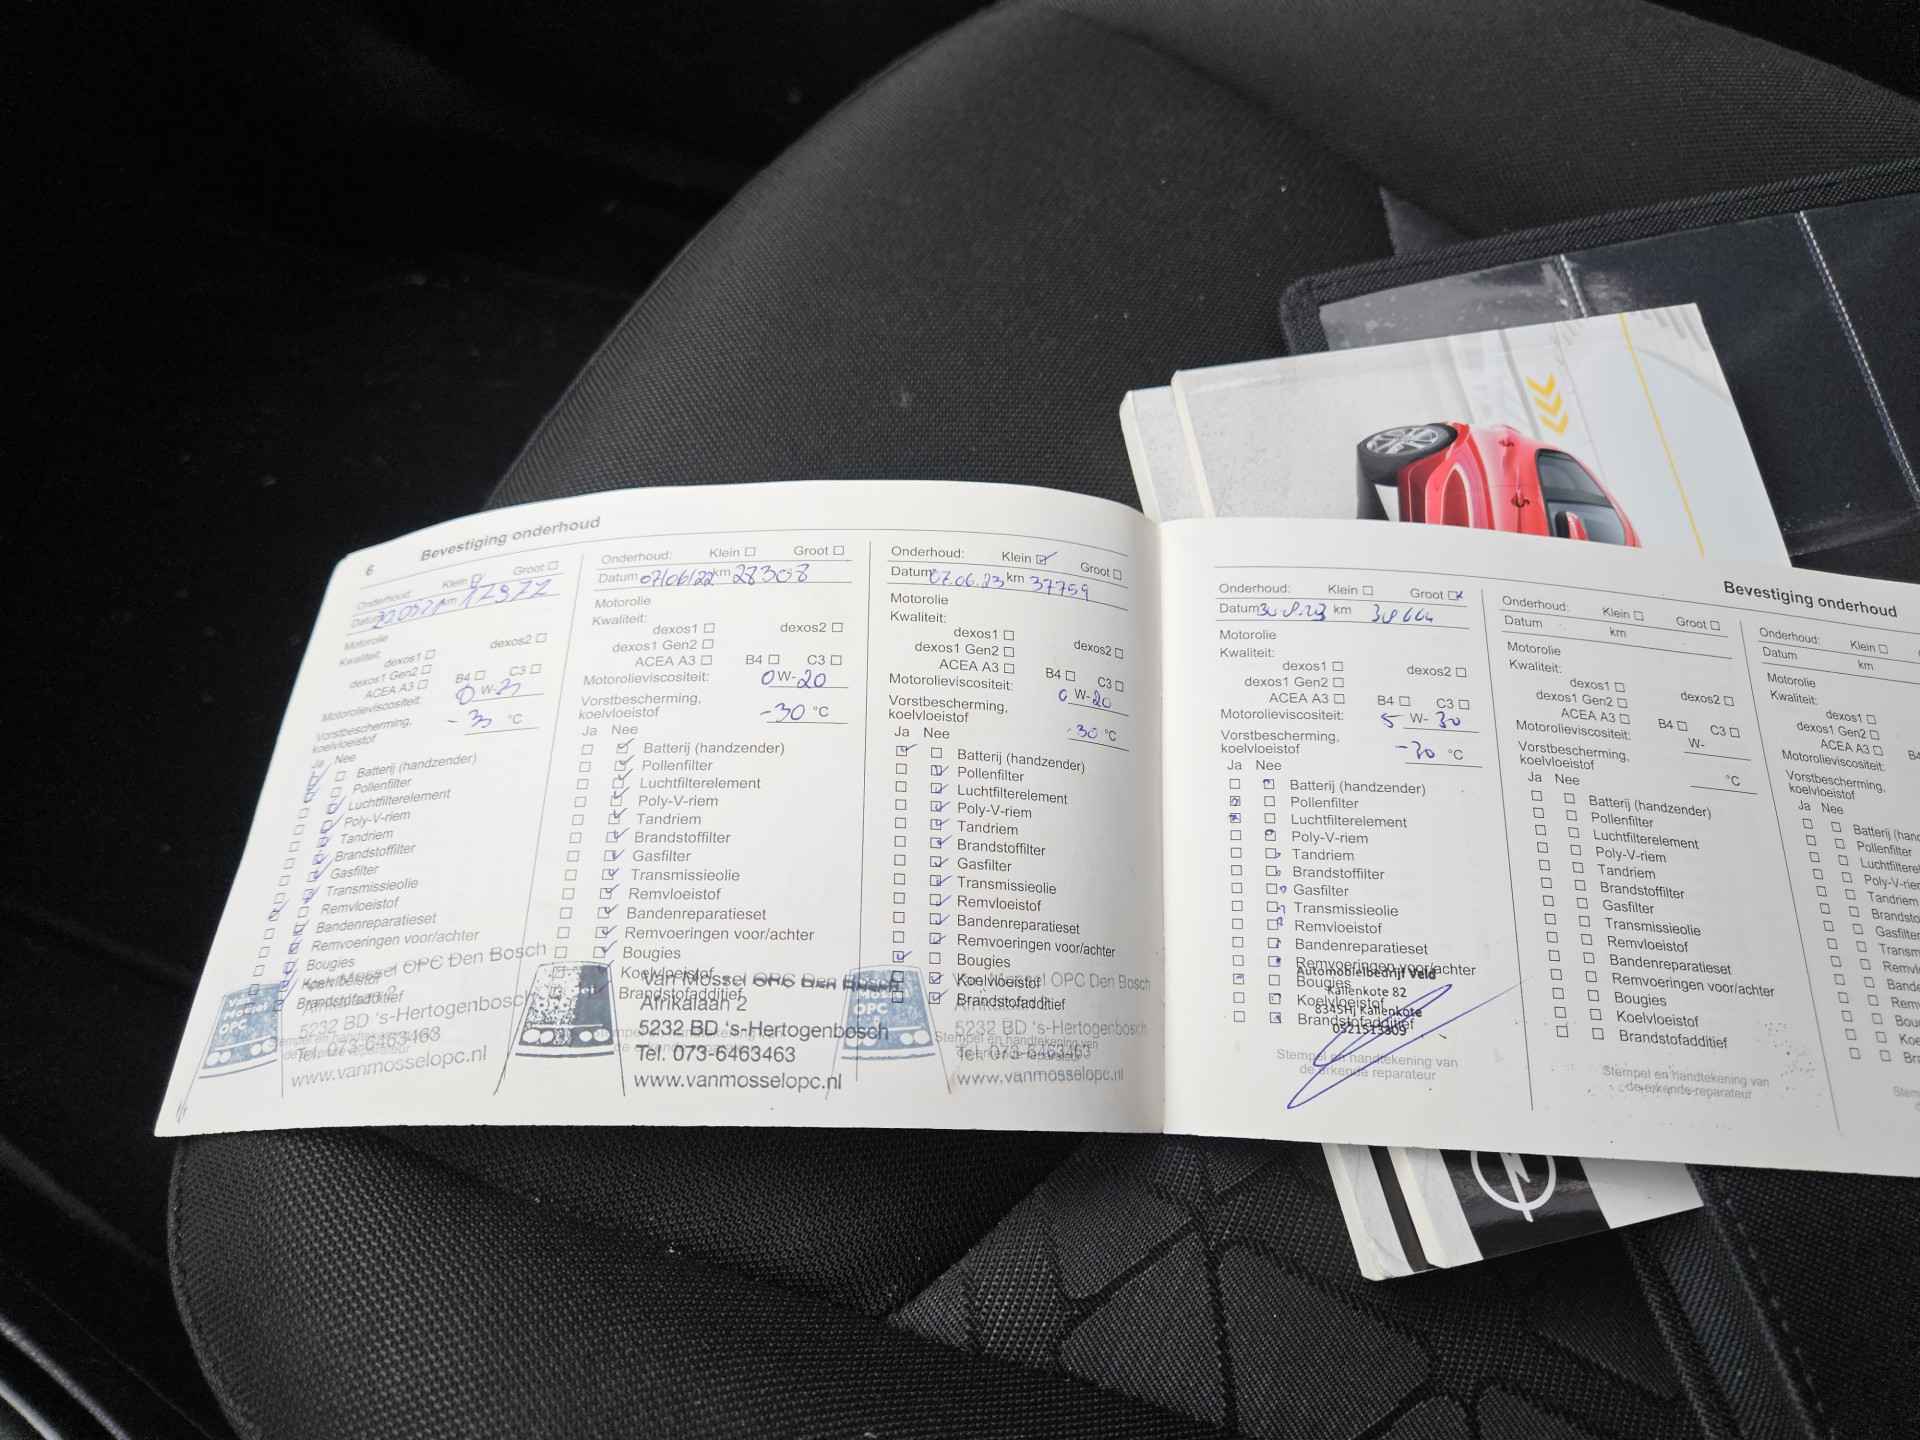 6
Bevestiging onderhoud
Onderhoud: Klein Groot
Datum km
Motorolie
Kwaliteit:
dexos1 dexos2
dexos1 Gen2
ACEA A3 B4 C3
Motorolieviscositeit: 0 W-
Vorstbescherming,
koelvloeistof °C
Ja Nee
Batterij (handzender)
Pollenfilter
Luchtfilterelement
Poly-V-riem
Tandriem
Brandstoffilter
Gasfilter
Transmissieolie
Remvloeistof
Bandenreparatieset
Remvoeringen voor/achter
Bougies
Koelvloeistof
Brandstofadditief
Van Mossel OPC Den Bosch
5232 BD 's-Hertogenbosch
Tel. 073-6463463
www.vanmosselopc.nl
Onderhoud: Klein Groot
Datum 07/06/22 km 28308
Motorolie
Kwaliteit:
dexos1 dexos2
dexos1 Gen2
ACEA A3 B4 C3
Motorolieviscositeit: 0 W-20
Vorstbescherming,
koelvloeistof -30 °C
Ja Nee
Batterij (handzender)
Pollenfilter
Luchtfilterelement
Poly-V-riem
Tandriem
Brandstoffilter
Gasfilter
Transmissieolie
Remvloeistof
Bandenreparatieset
Remvoeringen voor/achter
Bougies
Koelvloeistof
Brandstofadditief
Van Mossel OPC Den Bosch
Afrikalaan 2
5232 BD 's-Hertogenbosch
Tel. 073-6463463
www.vanmosselopc.nl
Onderhoud: Klein Groot
Datum 07.06.23 km 37759
Motorolie
Kwaliteit:
dexos1 dexos2
dexos1 Gen2
ACEA A3 B4 C3
Motorolieviscositeit: 0 W-20
Vorstbescherming,
koelvloeistof -30 °C
Ja Nee
Batterij (handzender)
Pollenfilter
Luchtfilterelement
Poly-V-riem
Tandriem
Brandstoffilter
Gasfilter
Transmissieolie
Remvloeistof
Bandenreparatieset
Remvoeringen voor/achter
Bougies
Koelvloeistof
Brandstofadditief
Van Mossel OPC Den Bosch
Afrikalaan 2
5232 BD 's-Hertogenbosch
Tel. 073-6463463
www.vanmosselopc.nl
Bevestiging onderhoud
Onderhoud: Klein Groot
Datum km
Motorolie
Kwaliteit:
dexos1 dexos2
dexos1 Gen2
ACEA A3 B4 C3
Motorolieviscositeit: 5 W- 30
Vorstbescherming,
koelvloeistof °C
Ja Nee
Batterij (handzender)
Pollenfilter
Luchtfilterelement
Poly-V-riem
Tandriem
Brandstoffilter
Gasfilter
Transmissieolie
Remvloeistof
Bandenreparatieset
Remvoeringen voor/achter
Bougies
Koelvloeistof
Brandstofadditief
Automobielbedrijf Veld
Kallenkote 82
8345HJ Kallenkote
0521513809
Stempel en handtekening van
de erkende reparateur
Onderhoud: Klein Groot
Datum km
Motorolie
Kwaliteit:
dexos1 dexos2
dexos1 Gen2
ACEA A3 B4 C3
Motorolieviscositeit: W-
Vorstbescherming,
koelvloeistof °C
Ja Nee
Batterij (handzender)
Pollenfilter
Luchtfilterelement
Poly-V-riem
Tandriem
Brandstoffilter
Gasfilter
Transmissieolie
Remvloeistof
Bandenreparatieset
Remvoeringen voor/achter
Bougies
Koelvloeistof
Brandstofadditief
Stempel en handtekening van
de erkende reparateur
Onderhoud: Klein
Datum km
Motorolie
Kwaliteit:
dexos1
dexos1 Gen2
ACEA A3
Motorolieviscositeit:
Vorstbescherming,
koelvloeistof
Ja Nee